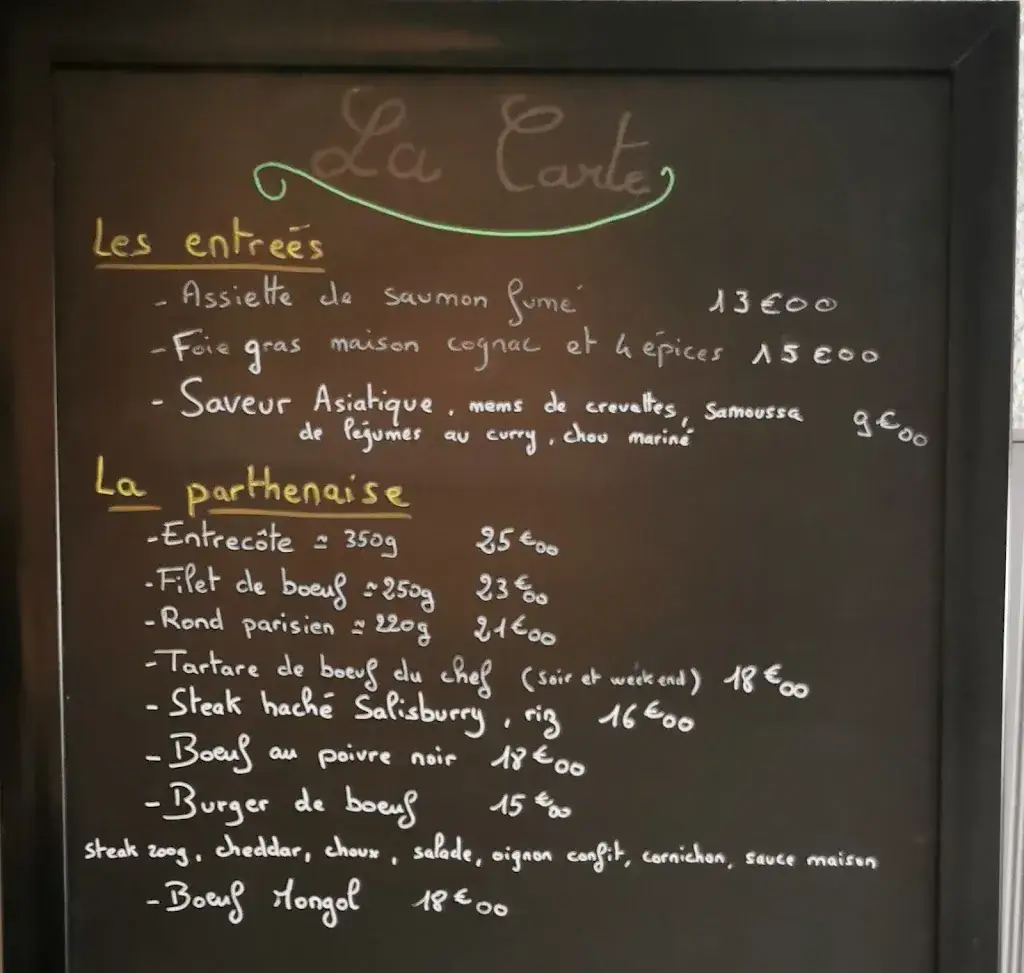 La Carte
Les entreés
- Assiette de saumon fumé 13€00
- Foie gras maison cognac et 4 épices 15€00
- Saveur Asiatique, mems de crevettes, Samoussa 9€00
de légumes au curry, chou mariné
La parthenaise
- Entrecôte ≃ 350g 25€00
- Filet de boeuf ≃ 250g 23€00
- Rond parisien ≃ 220g 21€00
- Tartare de boeuf du chef (Soir et week end) 18€00
- Steak haché Salisburry, riz 16€00
- Boeuf au poivre noir 18€00
- Burger de boeuf 15€00
Steak 200g, cheddar, choux, salade, oignon confit, cornichon, sauce maison
- Boeuf Mongol 18€00